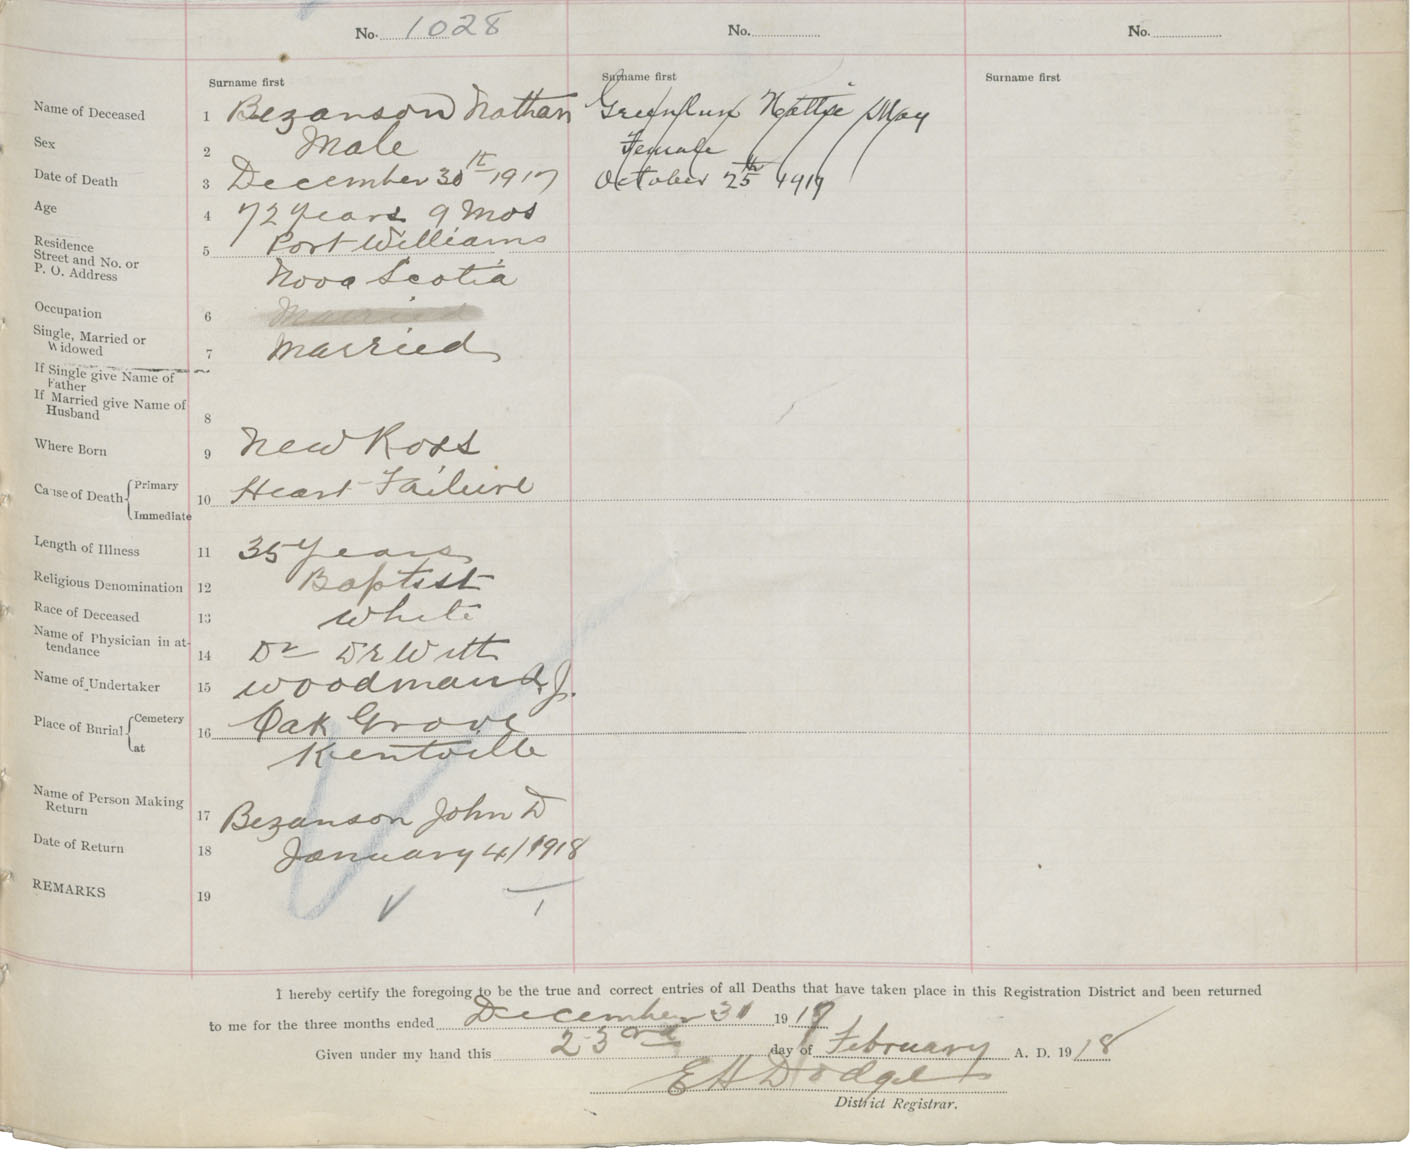 No. 1028 No. No.
Surname first Surname first Surname first
Name of Deceased 1 Bezanson Nathan Hattie May
Sex 2 Male Female
Date of Death 3 December 30th 1917 October 25th 1917
Age 4 72 years 9 Mos
Residence
Street and No. or
P. O. Address
5 Port Williams
Nova Scotia
Occupation 6 Married
Single, Married or
Widowed
7 Married
If Single give Name of
Father
If Married give Name of
Husband
8
Where Born 9 New Ross
Cause of Death { Primary
Immediate
10 Heart Failure
Length of Illness 11 35 years
Religious Denomination 12 Baptist
Race of Deceased 13 White
Name of Physician in at-
tendance
14 Dr DeWitt
Name of Undertaker 15 Woodman
Place of Burial { Cemetery
at
16 Oak Grove
Kentville
Name of Person Making
Return
17 Bezanson John D
Date of Return 18 January 4/1918
REMARKS 19
I hereby certify the foregoing to be the true and correct entries of all Deaths that have taken place in this Registration District and been returned
to me for the three months ended December 31 1917
Given under my hand this 23rd day of February A. D. 1918
E H Dodge
District Registrar.